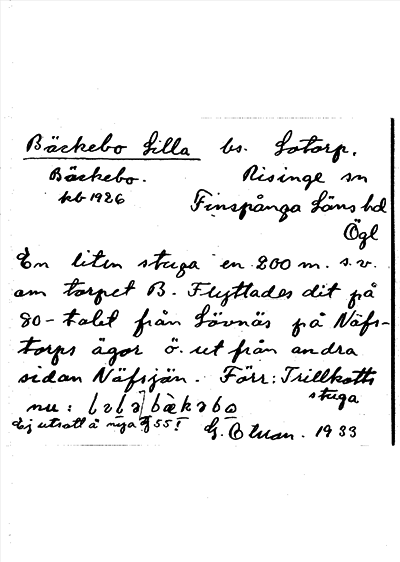 Bäckebo Lilla bs. Lotorp.
Bäckebo. Risinge sn
kb 1926 Finspånga läns hd
Ögl
En liten stuga en 200 m. s.v.
om torpet B. Flyttades dit på
80-talet från Lövnäs på Näfs-
torps ägor ö. ut från andra
sidan Näfsjön. Förr: Trillkotts
stuga
nu:
Ej utsatt å nya
1933